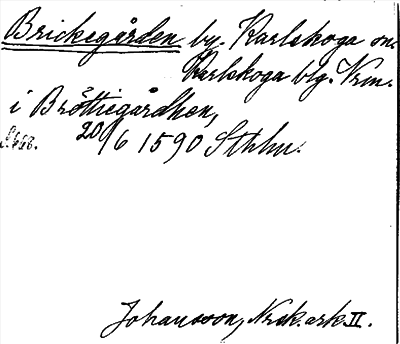 Brickegården by, Karlskoga sn.
Karlskoga blg. Vrm.
i Bröttiegårdhen,
20/6 1590 Sthlm.
Johansson, Nrsk.ark.II.